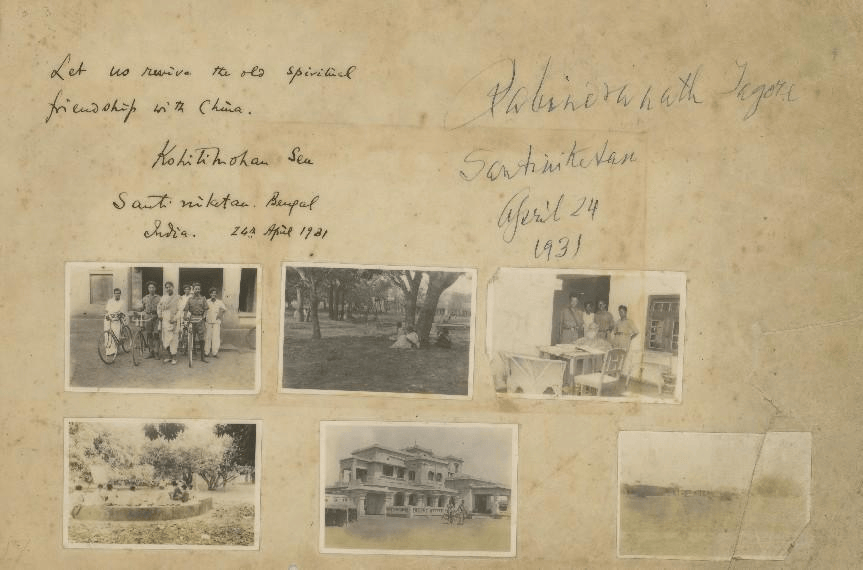 Let us revive the old spiritual
friendship with China.
Kshitimohan Sen
Santiniketan. Bengal
India. 24th April 1931
Rabindranath Tagore
Santiniketan
April 24
1931